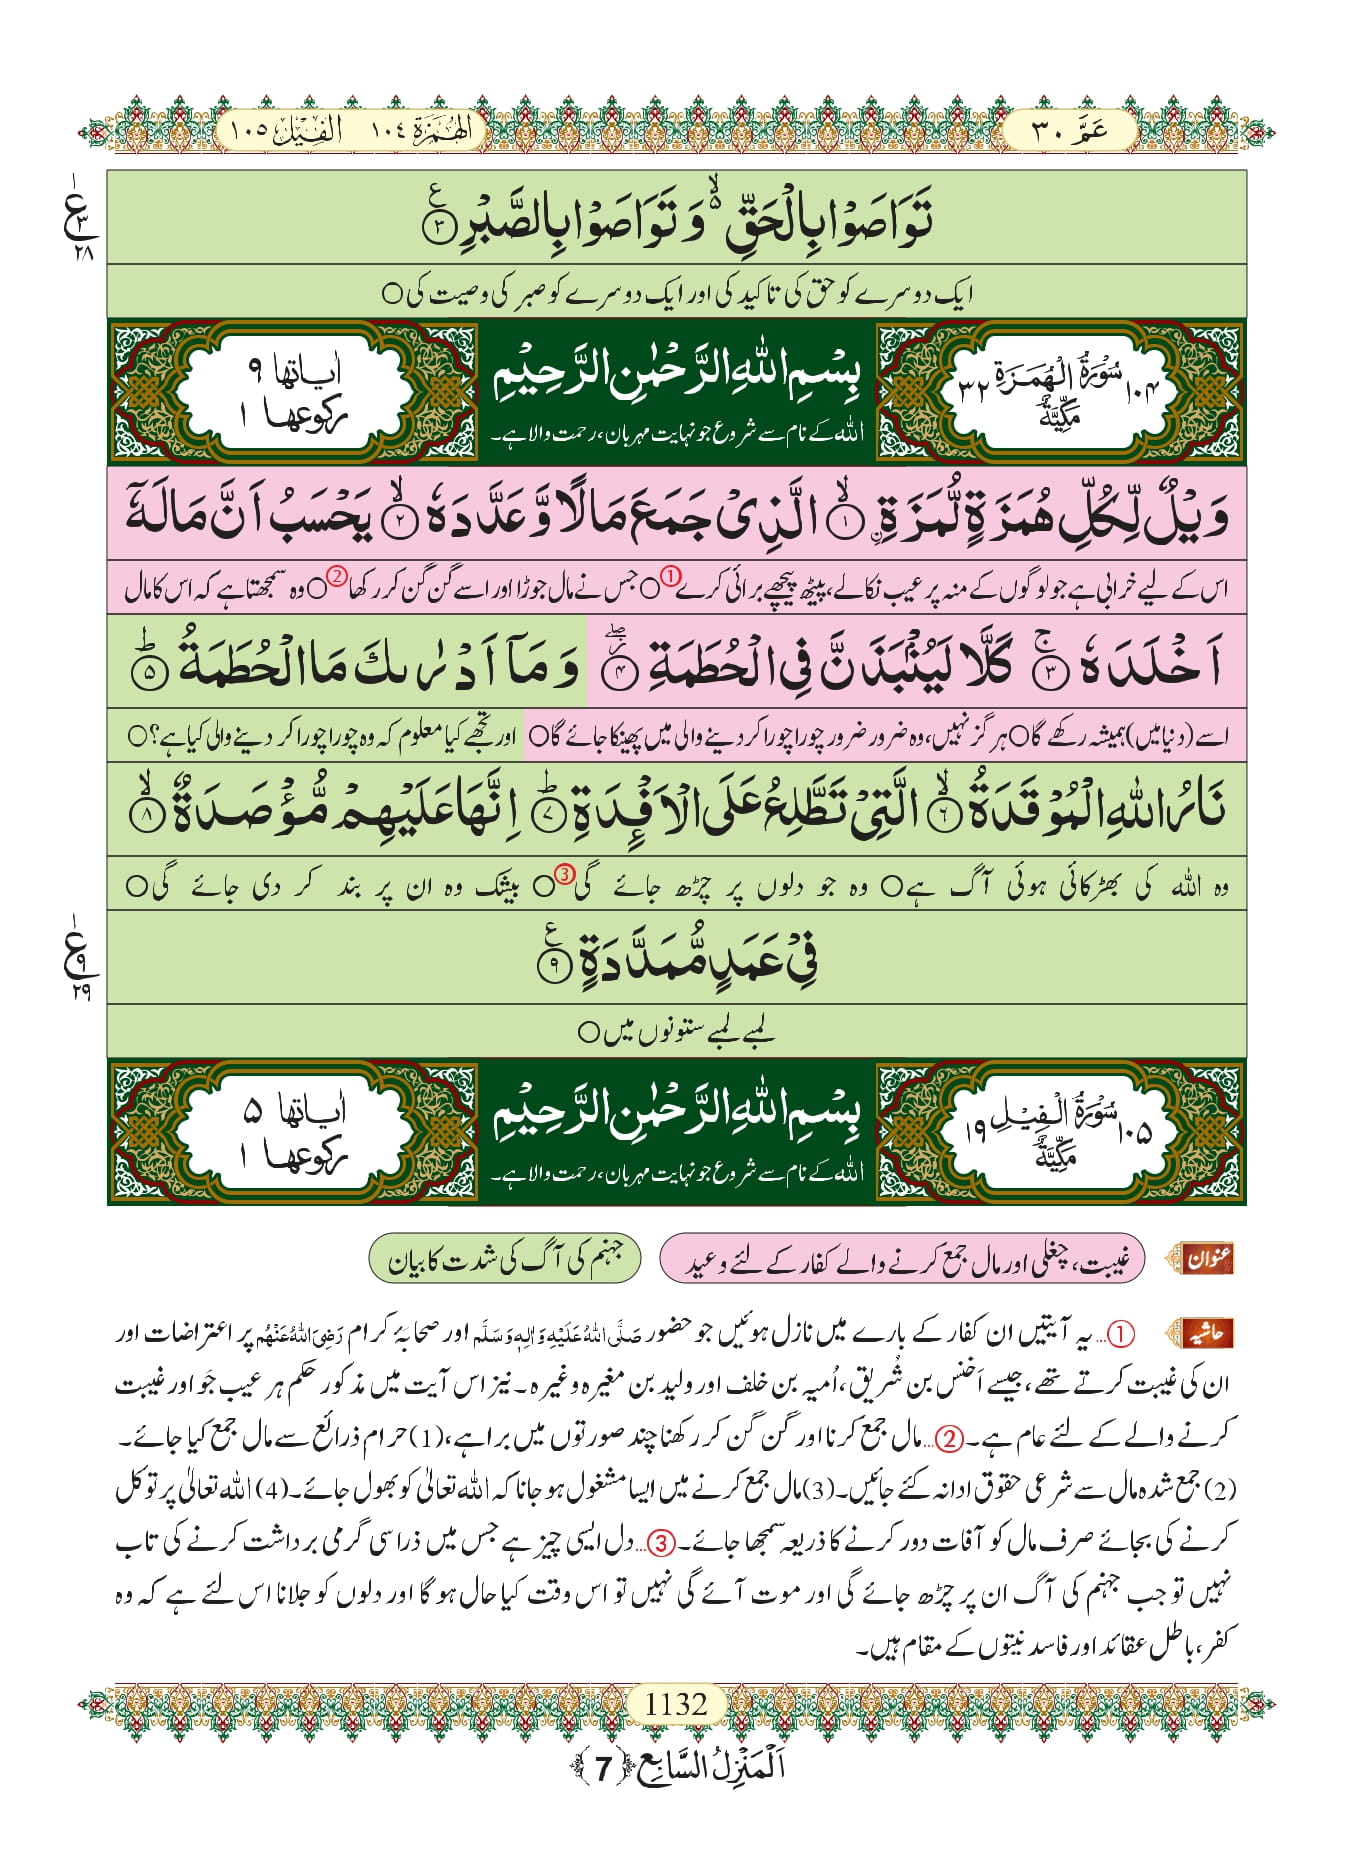 عَمَّ ٣٠
الهُمَزَة ١٠٤ الفِيْل ١٠٥
تَوَاصَوْا بِالْحَقِّ ۙ۬ وَ تَوَاصَوْا بِالصَّبْرِ ﴿۳﴾ ع
ع ٣ ٢٨
ایک دوسرے کو حق کی تاکید کی اور ایک دوسرے کو صبر کی وصیت کی ○
۱۰۴ سُوْرَةُ الْهُمَزَةِ ۳۲
مَكِّيَّةٌ
بِسْمِ اللّٰهِ الرَّحْمٰنِ الرَّحِیْمِ
اللہ کے نام سے شروع جو نہایت مہربان، رحمت والا ہے۔
اٰیاتها ۹
رکوعها ۱
وَیْلٌ لِّكُلِّ هُمَزَةٍ لُّمَزَةِۙ ﴿۱﴾ ﹰالَّذِیْ جَمَعَ مَالًا وَّ عَدَّدَهٗۙ ﴿۲﴾ یَحْسَبُ اَنَّ مَالَهٗۤ
اس کے لیے خرابی ہے جو لوگوں کے منہ پر عیب نکالے، پیٹھ پیچھے برائی کرے ① ○ جس نے مال جوڑا اور اسے گن گن کر رکھا ② ○ وہ سمجھتا ہے کہ اس کا مال
اَخْلَدَهٗۚ ﴿۳﴾ كَلَّا لَیُنْۢبَذَنَّ فِی الْحُطَمَةِ٘ۖ ﴿۴﴾ وَ مَاۤ اَدْرٰىكَ مَا الْحُطَمَةُؕ ﴿۵﴾
اسے (دنیا میں) ہمیشہ رکھے گا ○ ہرگز نہیں، وہ ضرور ضرور چورا چورا کر دینے والی میں پھینکا جائے گا ○ اور تجھے کیا معلوم کہ وہ چورا چورا کر دینے والی کیا ہے؟ ○
نَارُ اللّٰهِ الْمُوْقَدَةُۙ ﴿۶﴾ الَّتِیْ تَطَّلِعُ عَلَى الْاَفْـِٕدَةِؕ ﴿۷﴾ اِنَّهَا عَلَیْهِمْ مُّؤْصَدَةٌۙ ﴿۸﴾
وہ اللہ کی بھڑکائی ہوئی آگ ہے ○ وہ جو دلوں پر چڑھ جائے گی ③ ○ بیشک وہ ان پر بند کر دی جائے گی ○
فِیْ عَمَدٍ مُّمَدَّدَةٍ ﴿۹﴾ ع
ع ٩ ٢٩
لمبے لمبے ستونوں میں ○
۱۰۵ سُوْرَةُ الْفِيْلِ ۱۹
مَكِّيَّةٌ
بِسْمِ اللّٰهِ الرَّحْمٰنِ الرَّحِیْمِ
اللہ کے نام سے شروع جو نہایت مہربان، رحمت والا ہے۔
اٰیاتها ۵
رکوعها ۱
عنوان غیبت، چغلی اور مال جمع کرنے والے کفار کے لئے وعید جہنم کی آگ کی شدت کا بیان
حاشیہ ①... یہ آیتیں ان کفار کے بارے میں نازل ہوئیں جو حضور صَلَّى اللهُ عَلَيْهِ وَاٰلِهٖ وَسَلَّم اور صحابۂ کرام رَضِیَ اللهُ عَنْهُم پر اعتراضات اور
ان کی غیبت کرتے تھے، جیسے اَخنس بن شُریق، اُمیہ بن خلف اور ولید بن مغیرہ وغیرہ۔ نیز اس آیت میں مذکور حکم ہر عیب جَو اور غیبت
کرنے والے کے لئے عام ہے۔ ②... مال جمع کرنا اور گن گن کر رکھنا چند صورتوں میں برا ہے، (1) حرام ذرائع سے مال جمع کیا جائے۔
(2) جمع شدہ مال سے شرعی حقوق ادا نہ کئے جائیں۔ (3) مال جمع کرنے میں ایسا مشغول ہو جانا کہ اللہ تعالیٰ کو بھول جائے۔ (4) اللہ تعالیٰ پر توکل
کرنے کی بجائے صرف مال کو آفات دور کرنے کا ذریعہ سمجھا جائے۔ ③... دل ایسی چیز ہے جس میں ذرا سی گرمی برداشت کرنے کی تاب
نہیں تو جب جہنم کی آگ ان پر چڑھ جائے گی اور موت آئے گی نہیں تو اس وقت کیا حال ہو گا اور دلوں کو جلانا اس لئے ہے کہ وہ
کفر، باطل عقائد اور فاسد نیتوں کے مقام ہیں۔
1132
اَلْمَنْزِلُ السَّابِع ﴿7﴾